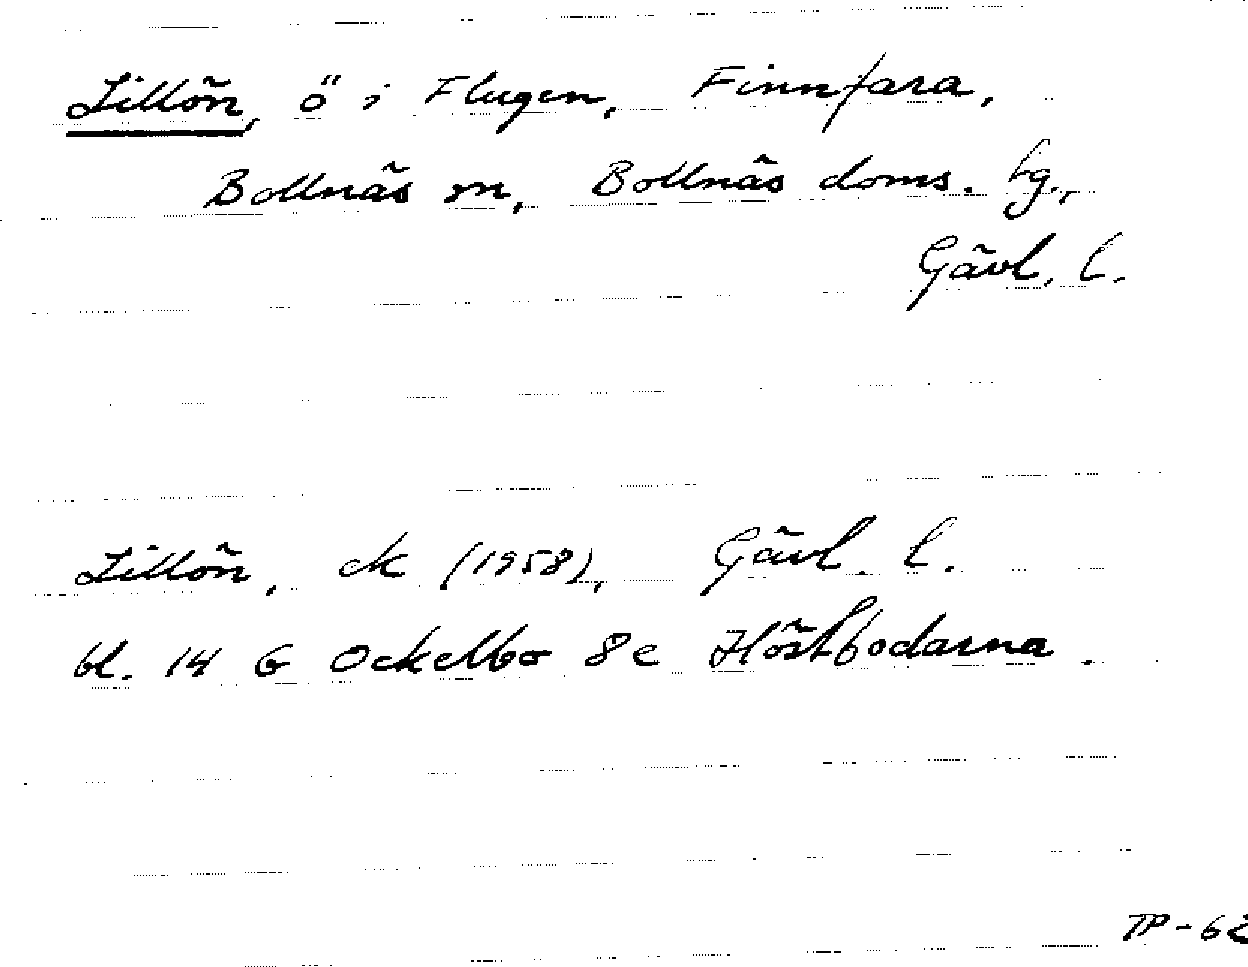 Lillön, ö i Flugen, Finnfara,
Bollnäs sn, Bollnäs doms. tg.,
Gävl. l.
Lillön, ek (1958), Gävl. l.
bl. 14 G Ockelbo 8e Höstbodarna.
TP-62